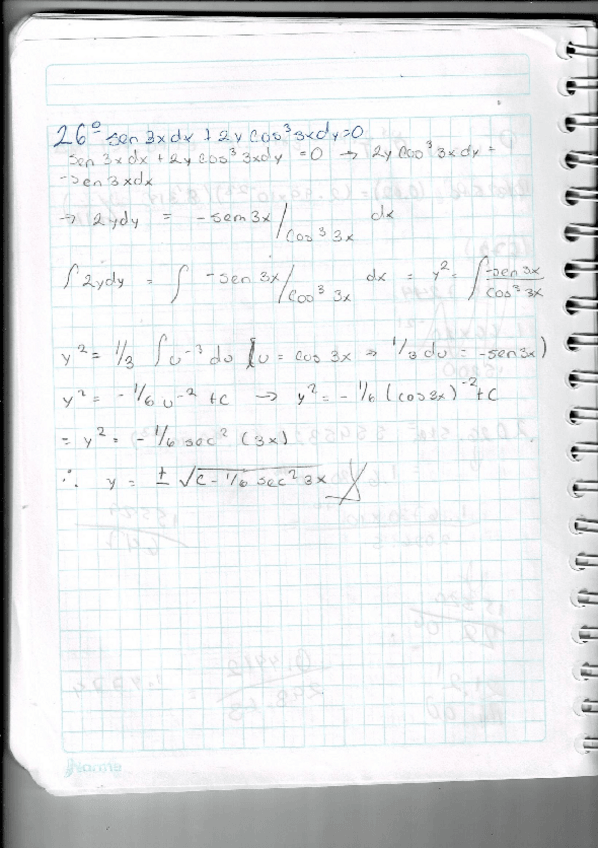 26° sen 3x dx + 2y cos³ 3x dy = 0
sen 3x dx + 2y cos³ 3x dy = 0 → 2y cos³ 3x dy =
-sen 3x dx
→ 2y dy = -sem 3x / cos³ 3x dx
∫ 2y dy = ∫ -sen 3x / cos³ 3x dx = y² = ∫ -sen 3x / cos³ 3x
y² = 1/3 ∫ u⁻³ du (u = cos 3x ⇒ 1/3 du = -sen 3x)
y² = -1/6 u⁻² + c → y² = -1/6 (cos 3x)⁻² + c
= y² = -1/6 sec² (3x)
∴ y = ± √(c - 1/6 sec² 3x)
Norma